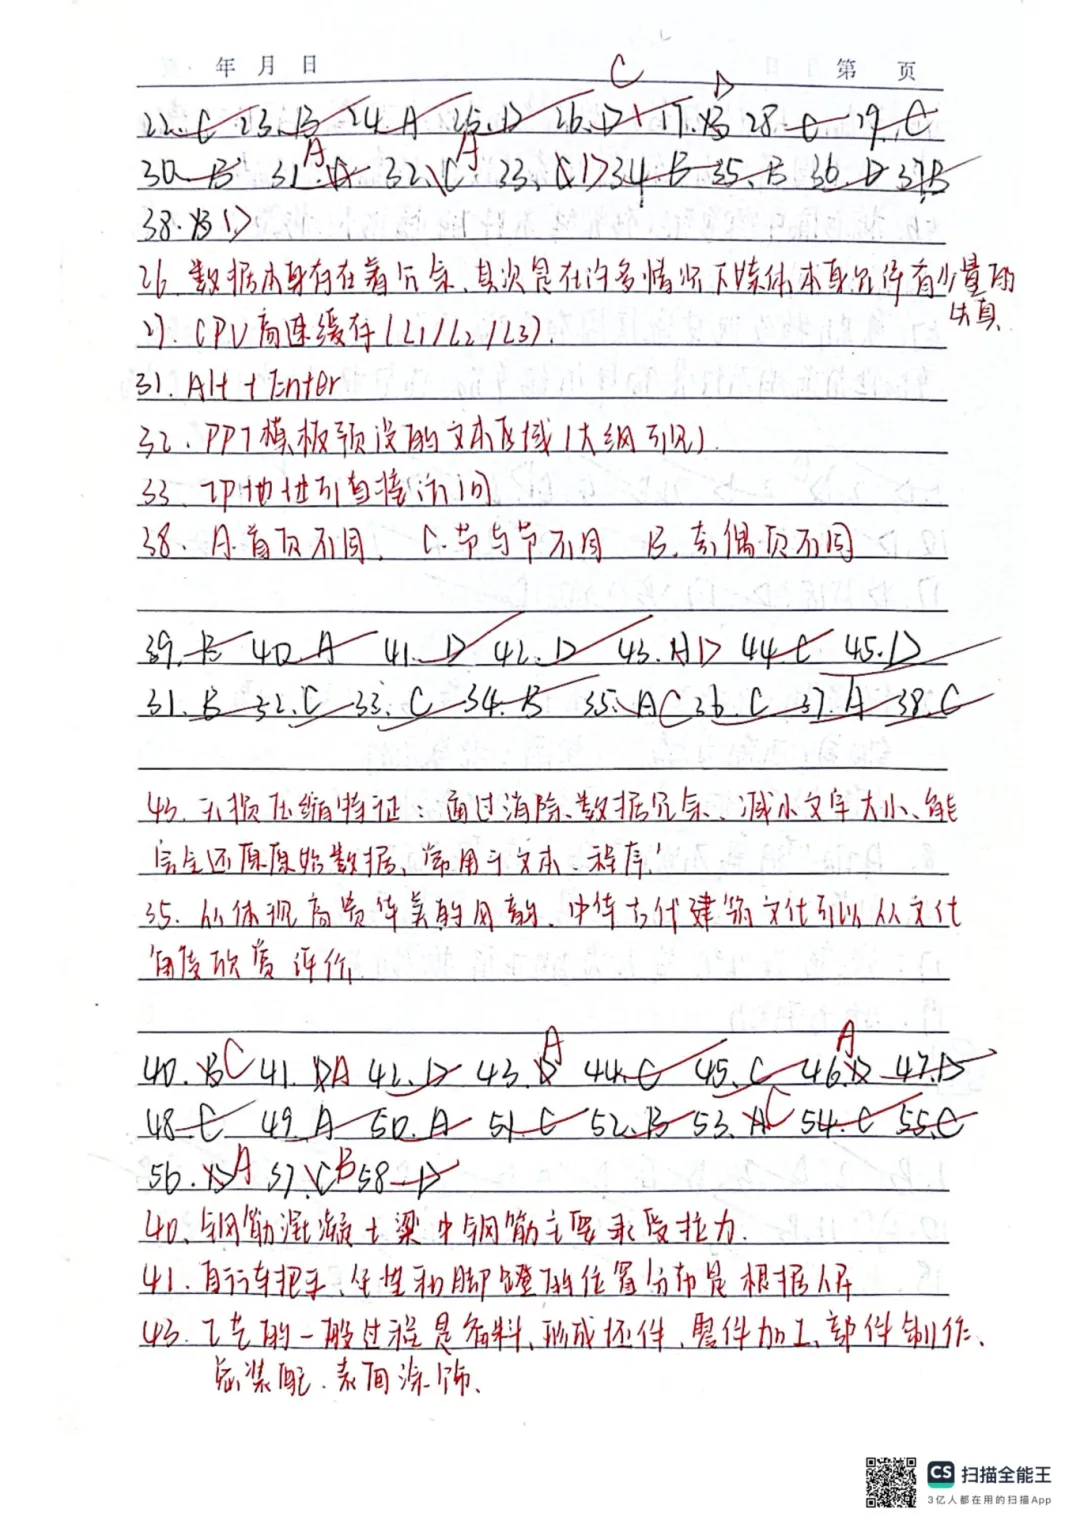 年 月 日 第 页
C D
22. C 23. B 24. A 25. D 26. D 27. B 28. C 29. C
A A
30. B 31. D 32. C 33. C D 34. B 35. B 36. D 37. B
38. B D
26. 数据本身存在着冗余,其次是在许多情况下媒体本身允许有少量的
失真
27. CPU高速缓存(L1/L2/L3).
31. Alt + Enter
32. PPT模板预设的文本区域(大纲可见).
33. IP地址可直接访问
38. A.首页不同. C.节与节不同 B.奇偶页不同
39. B 40. A 41. D 42. D 43. A D 44. C 45. D
31. B 32. C 33. C 34. B 35. A C 36. C 37. A 38. C
43. 无损压缩特征:通过消除数据冗余、减小文字大小、能
完全还原原始数据、常用于文本、程序
35. 从体现高贵华美的风韵、中华古代建筑文化可以从文化
角度欣赏评价
A A
40. B C 41. D A 42. D 43. D 44. C 45. C 46. D 47. D
48. C 49. A 50. A 51. C 52. B 53. A C 54. C 55. C
56. D A 57. C B 58. D
40. 钢筋混凝土梁中钢筋主要承受拉力.
41. 自行车把手、坐垫和脚蹬的位置分布是根据人
43. 工艺的一般过程是备料、形成坯件、零件加工、部件制作、
总装配、表面涂饰、
CS 扫描全能王
3亿人都在用的扫描App